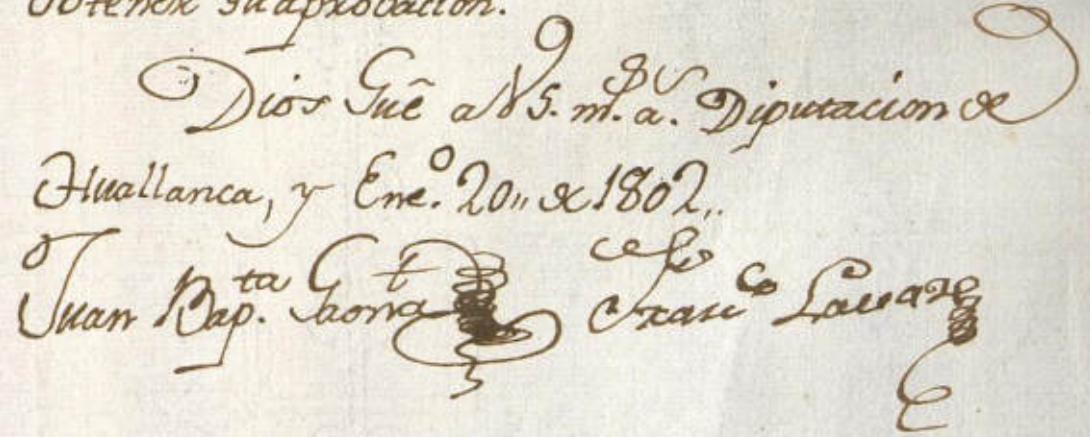 obtener su aprobacion.
Dios Gue͂ a V S. m.s a.s Diputacion de
Huallanca, y Ene.o 20,, de 1802,,
Juan Bap.ta Franco